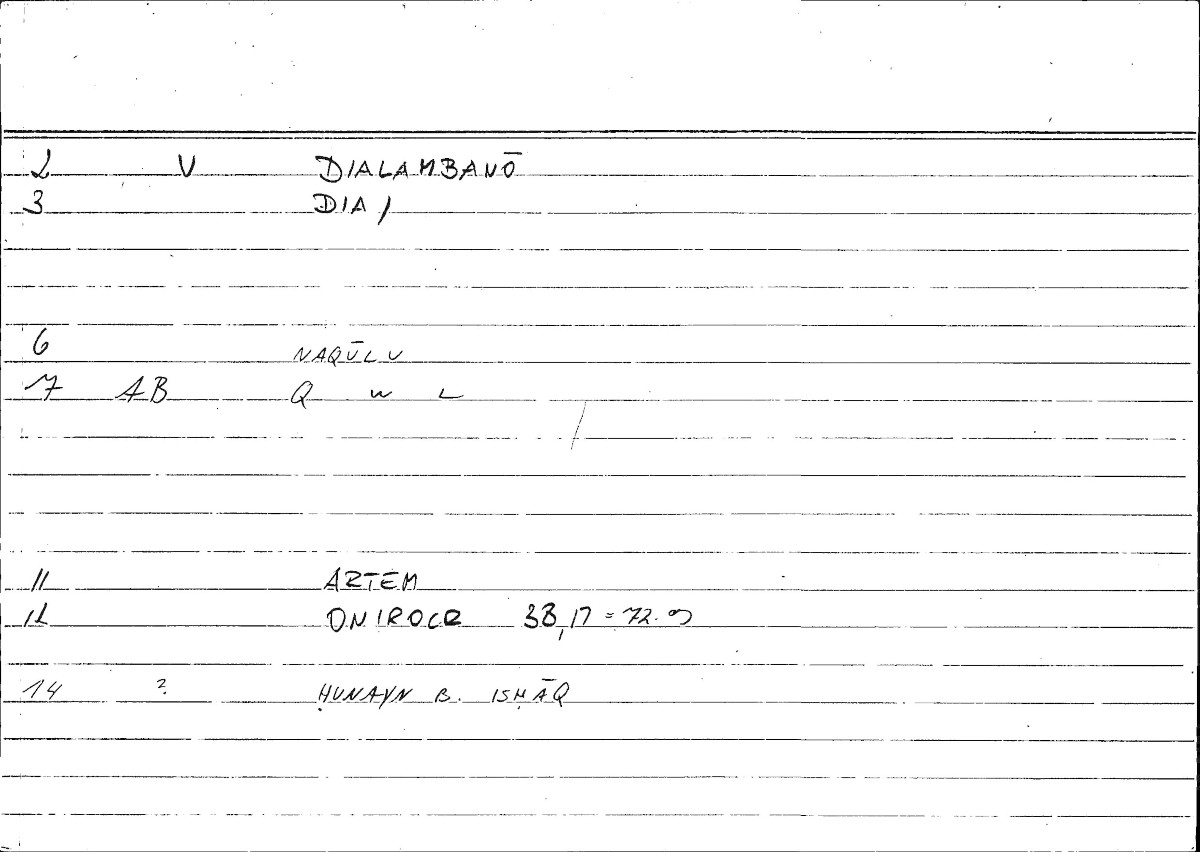 2 V DIALAMBANŌ
3 DIA /
6 NAQŪLU
7 AB Q W L
11 ARTEM
12 ONIROCR 38,17 = 72.9
14 ? ḤUNAYN B. ISḤĀQ